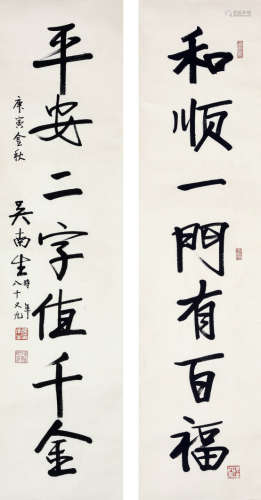 和顺一門有百福
平安二字值千金
庚寅金秋
吴南生时年
八十又九